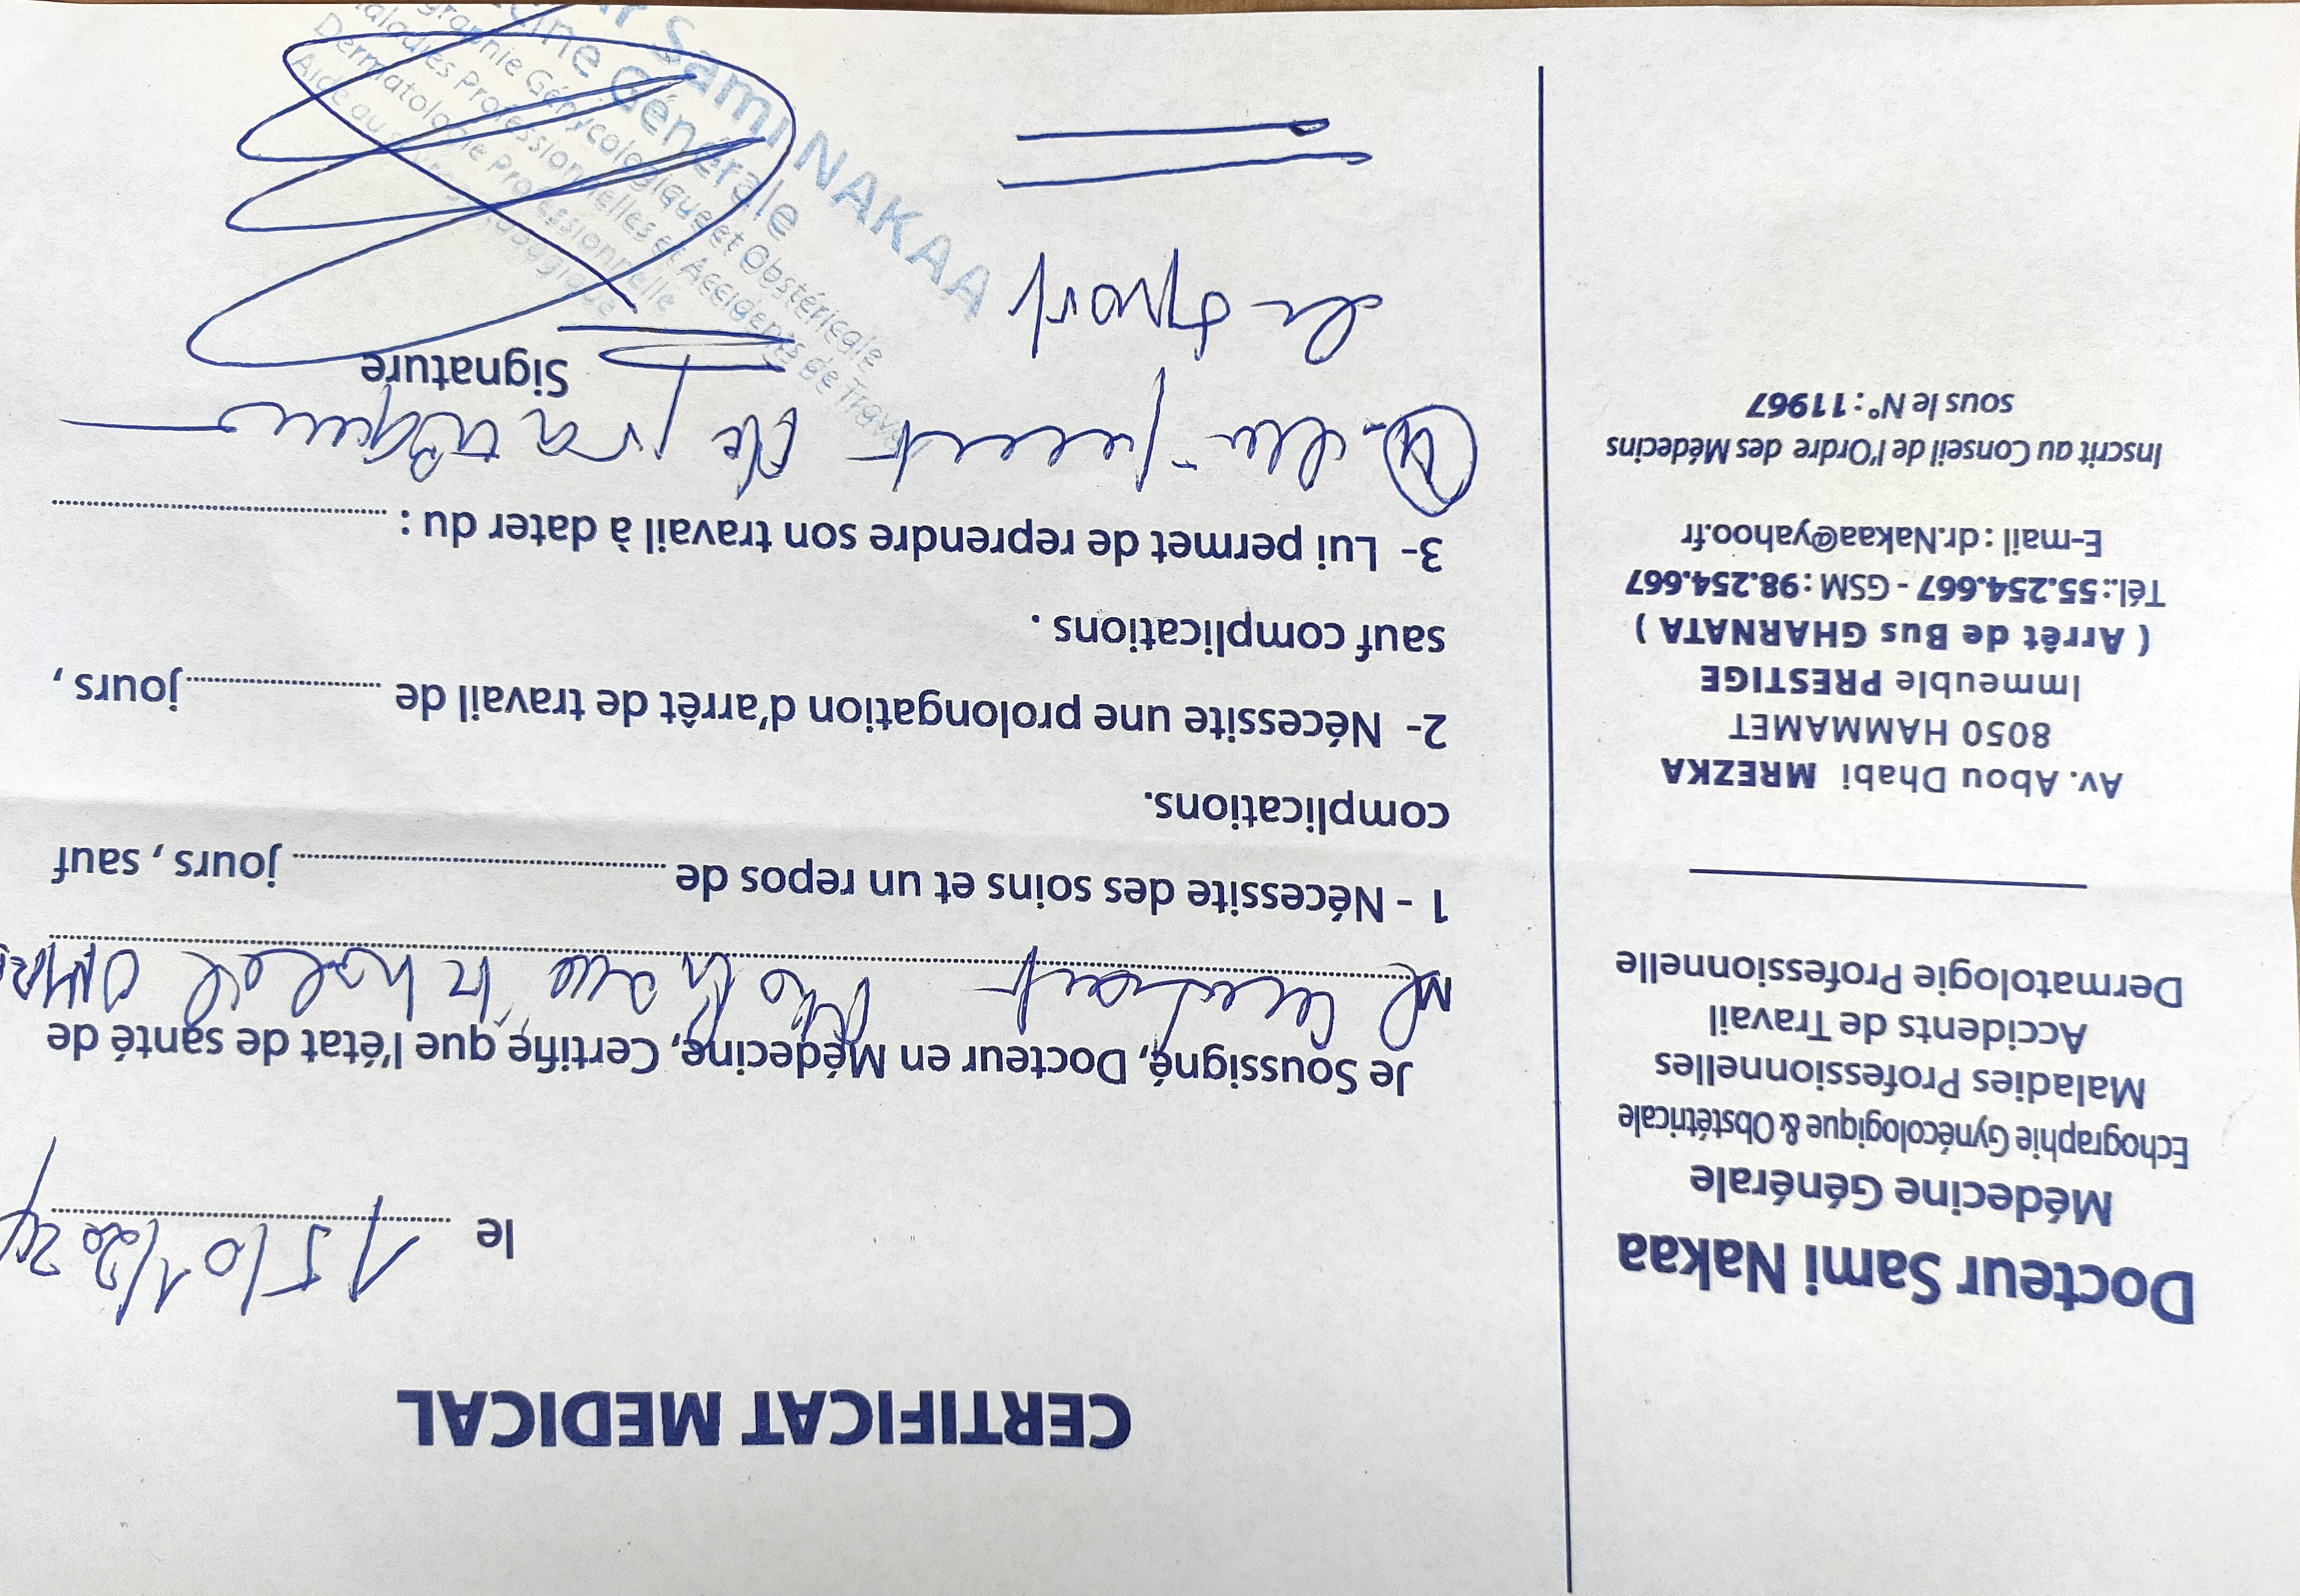 Docteur Sami Nakaa
Médecine Générale
Echographie Gynécologique & Obstétricale
Maladies Professionnelles
Accidents de Travail
Dermatologie Professionnelle
Av. Abou Dhabi MREZKA
8050 HAMMAMET
Immeuble PRESTIGE
( Arrêt de Bus GHARNATA )
Tél.: 55.254.667 - GSM : 98.254.667
E-mail : dr.Nakaa@yahoo.fr
Inscrit au Conseil de l'Ordre des Médecins
sous le N° : 11967
CERTIFICAT MEDICAL
le 15/01/2024
Je Soussigné, Docteur en Médecine, Certifie que l'état de santé de
1 - Nécessite des soins et un repos de jours , sauf
complications.
2- Nécessite une prolongation d'arrêt de travail de jours ,
sauf complications .
3- Lui permet de reprendre son travail à dater du :
④ permet de pratiquer
du sport
Signature
Sami NAKAA
Générale
Gynécologique et Obstéricale
Maladies Professionnelles et Accidents de Travail
Dermatologie Professionnelle